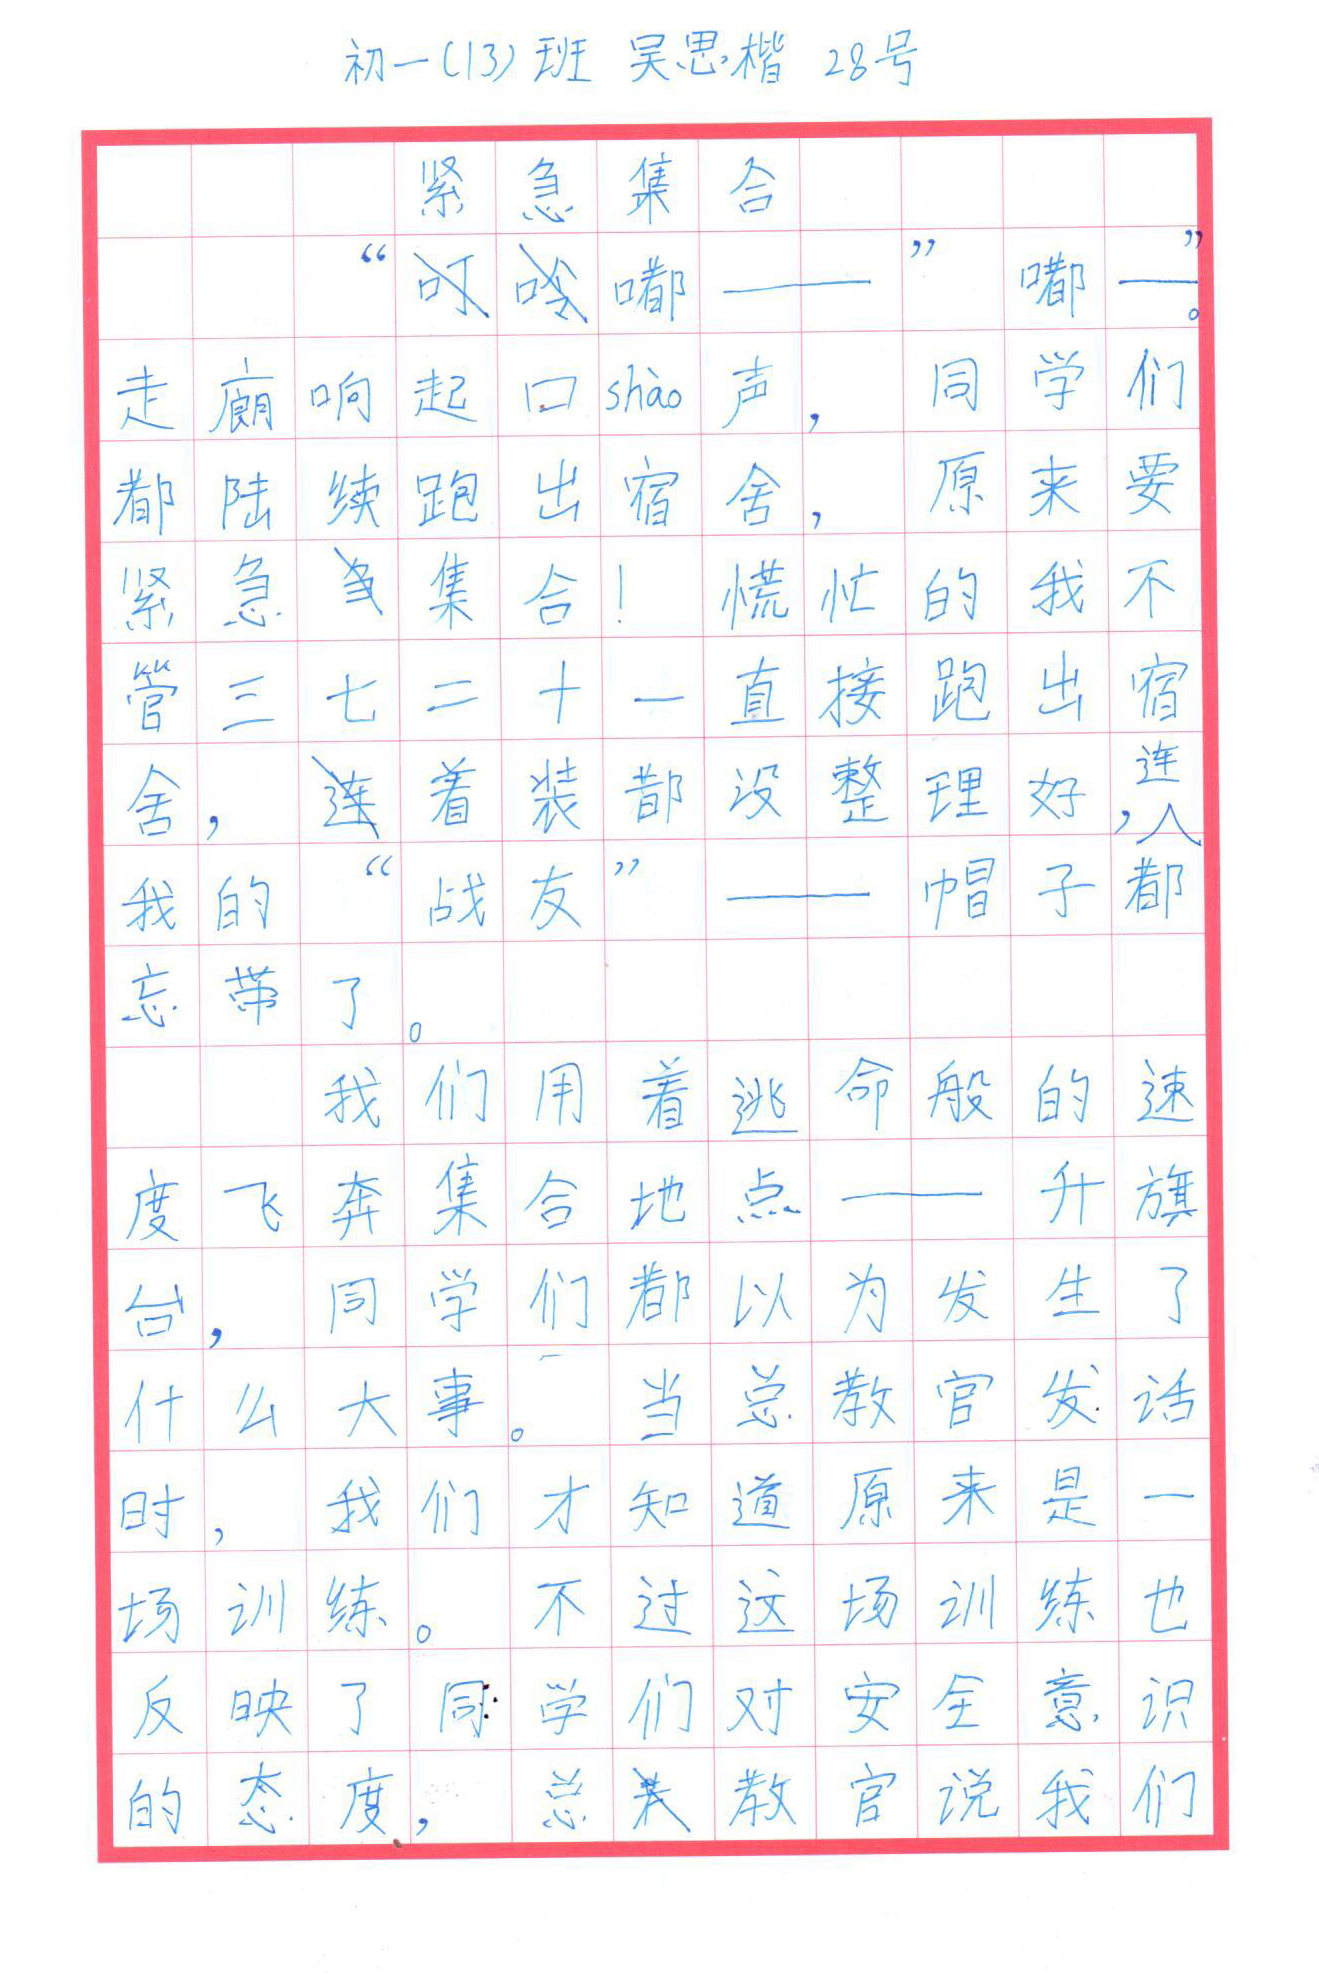 初一(13)班 吴思楷 28号
紧急集合
“嘟——” 嘟—”。
走廊响起口shào声，同学们
都陆续跑出宿舍，原来要
紧急集合！慌忙的我不
管三七二十一直接跑出宿
舍，着装都没整理好，连
我的“战友”——帽子都
忘带了。
我们用着逃命般的速
度飞奔集合地点——升旗
台，同学们都以为发生了
什么大事。当总教官发话
时，我们才知道原来是一
场训练。不过这场训练也
反映了同学们对安全意识
的态度，总教官说我们